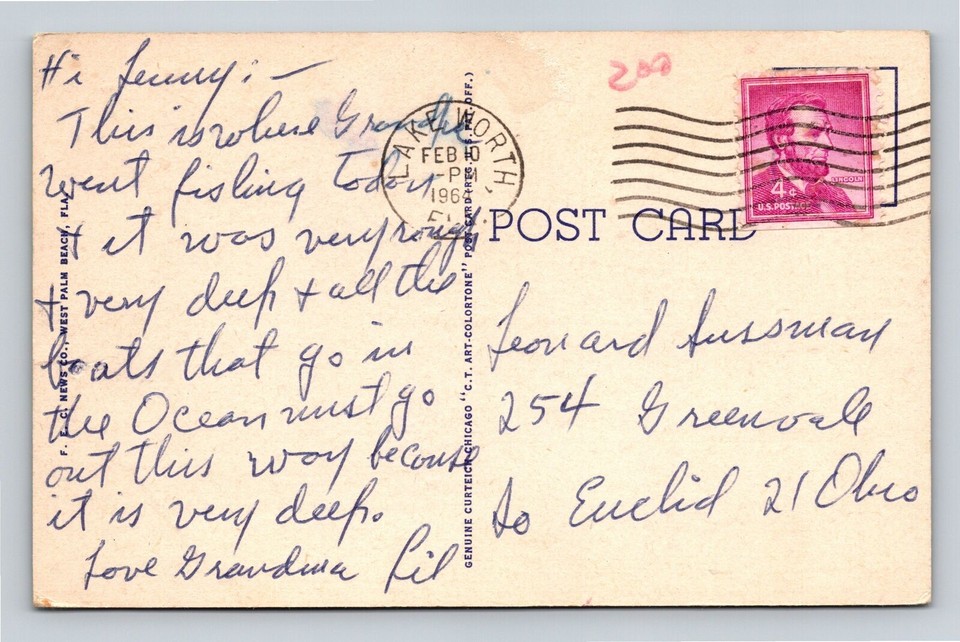 Hi Lenny: —
This is where Grandpa
went fishing today
+ it was very rough
+ very deep + all the
boats that go in
the Ocean must go
out this way because
it is very deep.
Love Grandma Lil
F. E. C. NEWS CO., WEST PALM BEACH, FLA.
GENUINE CURTEICH-CHICAGO "C.T. ART-COLORTONE" POST CARD (REG. U.S. PAT. OFF.)
LAKE WORTH,
FEB 10
-PM
196
FLA.
200
LINCOLN
4¢
U.S. POSTAGE
POST CARD
Leonard Sussman
254 Greenvale
So Euclid 21 Ohio